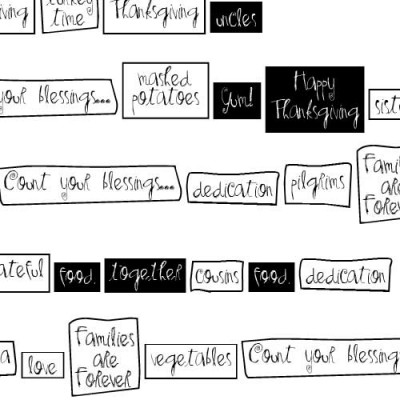 turkey
time
Thanksgiving
uncles
your blessings...
mashed
potatoes
Yum!
Happy
Thanksgiving
Count your blessings...
dedication
pilgrims
Families
are
Forever
food
together
cousins
food
dedication
love
Families
are
Forever
vegetables
Count your blessings